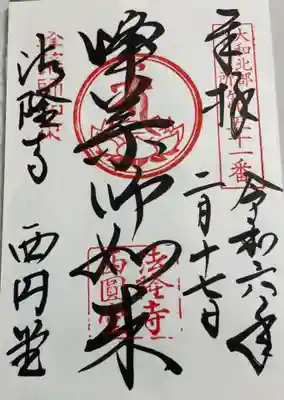 奉拝
大和北部
十一番
令和六年
二月十七日
峰薬師如来
法隆寺
西圓堂
法隆寺 西円堂